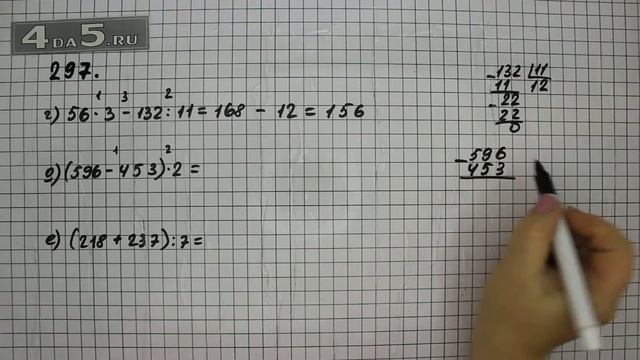 4DA5.RU
297.
1 3 2
г) 56 · 3 - 132 : 11 = 168 - 12 = 156
1 2
д) (596 - 453) · 2 =
е) (218 + 237) : 7 =
- 132 | 11
11 12
- 22
22
0
- 596
453